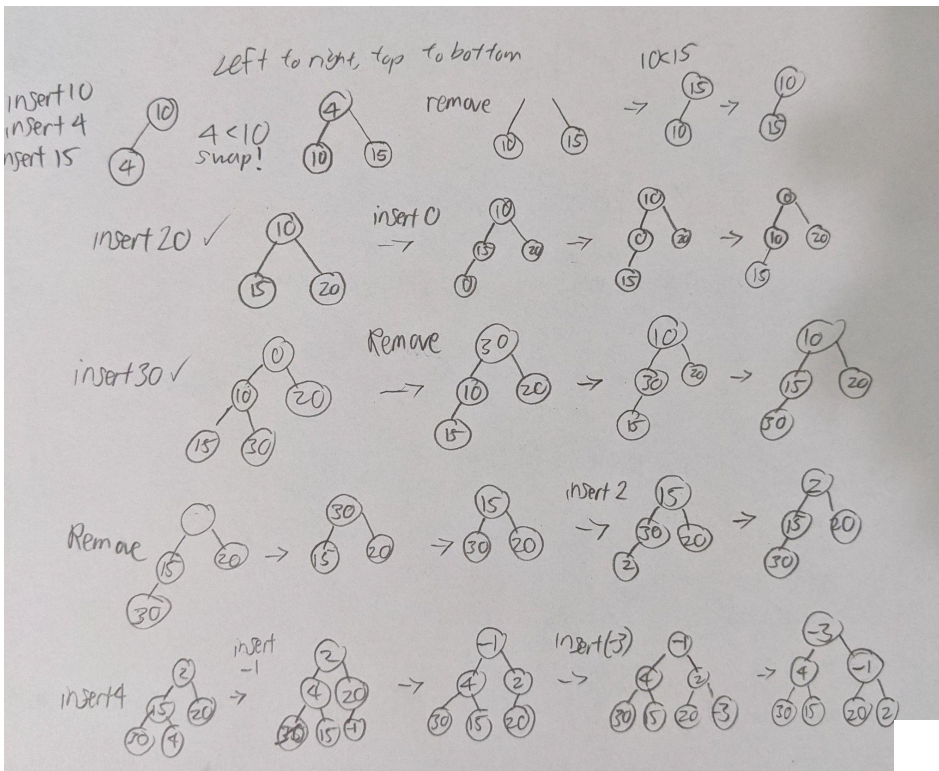 Left to right, top to bottom
insert 10
insert 4
nsert 15
10
4
4<10
swap!
4
10 15
remove
10 15
→
10<15
15
10
→
10
15
insert 20 ✓
10
15 20
insert 0
→
10
15 20
0
→
10
0 20
15
→
0
10 20
15
insert 30 ✓
0
10 20
15 30
Remove
→
30
10 20
15
→
10
30 20
15
→
10
15 20
30
Remove
15 20
30
→
30
15 20
→
15
30 20
insert 2
→
15
30 20
2
→
2
15 20
30
insert 4
2
15 20
30 4
insert
-1
→
2
4 20
30 15 -1
→
-1
4 2
30 15 20
insert(-3)
→
-1
4 2
30 15 20 -3
→
-3
4 -1
30 15 20 2